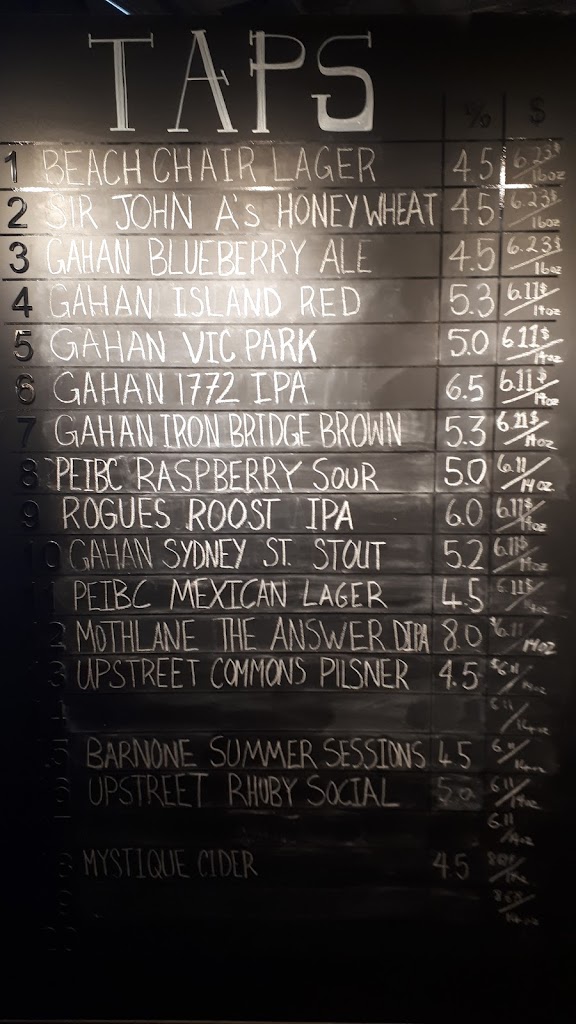 TAPS
% $
1 BEACH CHAIR LAGER 4.5 6.23$/16oz
2 SIR JOHN A's HONEYWHEAT 4.5 6.23$/16oz
3 GAHAN BLUEBERRY ALE 4.5 6.23$/16oz
4 GAHAN ISLAND RED 5.3 6.11$/14oz
5 GAHAN VIC PARK 5.0 6.11$/14oz
6 GAHAN 1772 IPA 6.5 6.11$/14oz
7 GAHAN IRON BRIDGE BROWN 5.3 6.11$/14oz
8 PEIBC RASPBERRY SOUR 5.0 6.11/14oz
9 ROGUES ROOST IPA 6.0 6.11$/14oz
10 GAHAN SYDNEY ST. STOUT 5.2 6.11$/14oz
11 PEIBC MEXICAN LAGER 4.5 6.11$/14oz
12 MOTHLANE THE ANSWER DIPA 8.0 $6.11/14oz
13 UPSTREET COMMONS PILSNER 4.5 $6.11/14oz
6.11/14oz
BARNONE SUMMER SESSIONS 4.5 6.11/14oz
UPSTREET RHUBY SOCIAL 5.0 6.11/14oz
6.11/14oz
MYSTIQUE CIDER 4.5